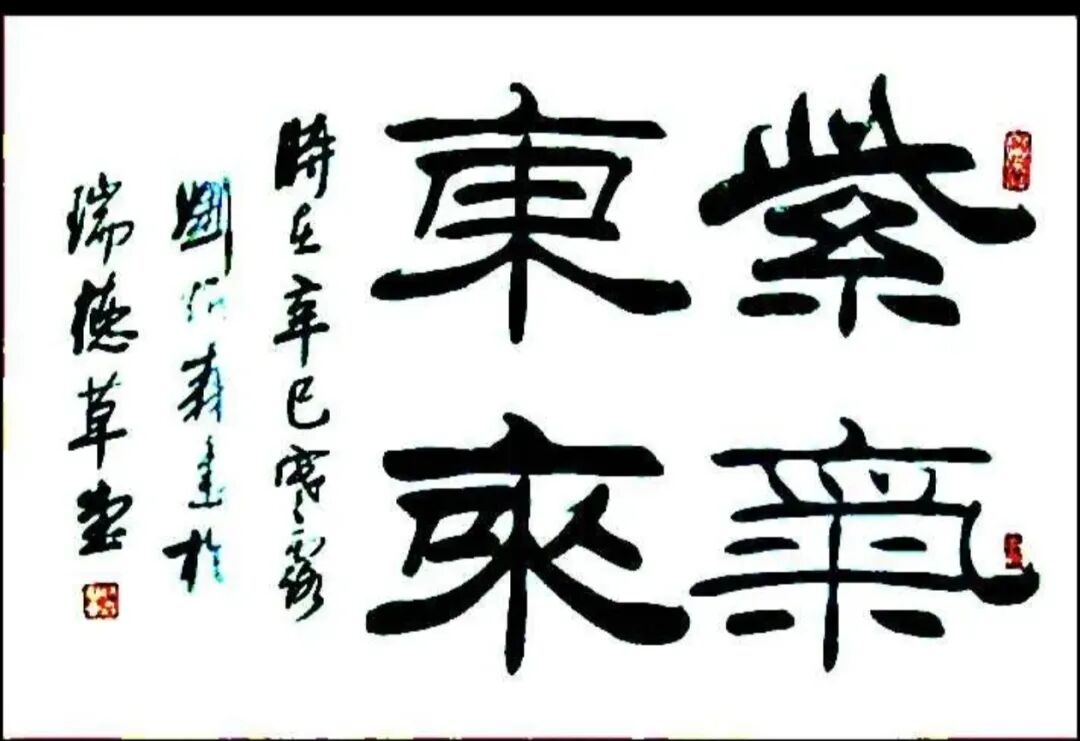 紫氣
東來
時在辛巳寒露
劉 森書於
瑞德草堂